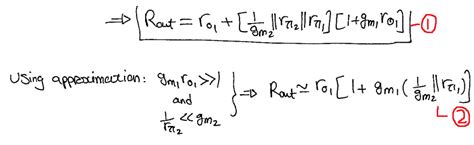 ⇒ Rout = ro1 + [1/gm2 || rπ2 || rπ1] [1+gm1 ro1] — ①
Using approximation: gm1 ro1 >> 1
and
1/rπ2 << gm2
⇒ Rout ≃ ro1 [1 + gm1 (1/gm2 || rπ1)]
②